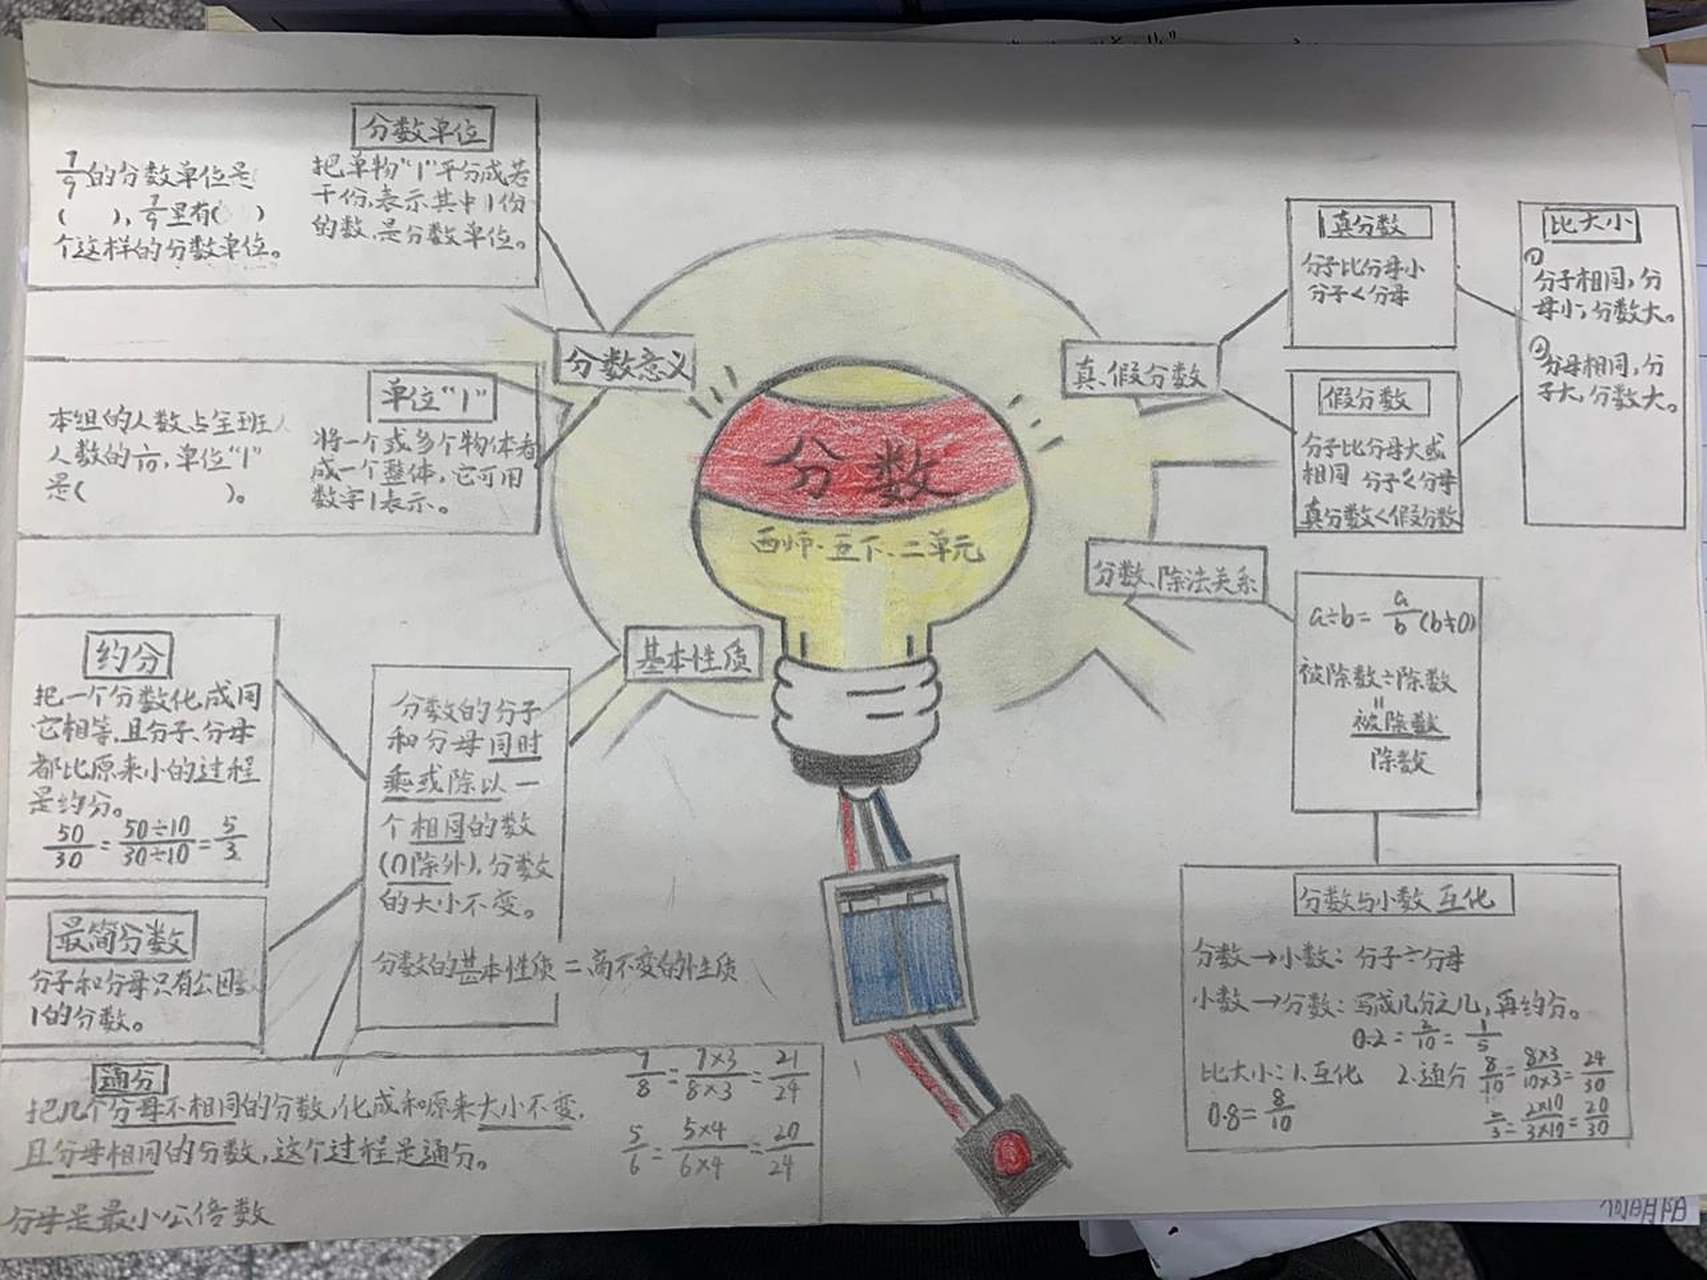 分数
西师·五下·二单元
分数意义
分数单位
把单物"1"平分成若
干份,表示其中1份
的数,是分数单位。
7/9的分数单位是
( ),7/9里有( )
个这样的分数单位。
单位"1"
将一个或多个物体看
成一个整体,它可用
数字1表示。
本组的人数占全班人
人数的/10,单位"1"
是( )。
基本性质
分数的分子
和分母同时
乘或除以一
个相同的数
(0除外),分数
的大小不变。
分数的基本性质=商不变的性质
约分
把一个分数化成同
它相等,且分子、分母
都比原来小的过程
是约分。
50/30=50÷10/30÷10=5/3
最简分数
分子和分母只有公因
1的分数。
通分
把几个分母不相同的分数,化成和原来大小不变,
且分母相同的分数,这个过程是通分。
分母是最小公倍数
7/8=7×3/8×3=21/24
5/6=5×4/6×4=20/24
真、假分数
真分数
分子比分母小
分子<分母
假分数
分子比分母大或
相同 分子≮分母
真分数<假分数
比大小
①
分子相同,分
母小,分数大。
②
分母相同,分
子大,分数大。
分数、除法关系
a÷b=a/b(b≠0)
被除数÷除数
=
被除数
除数
分数与小数互化
分数→小数:分子÷分母
小数→分数:写成几分之几,再约分。
0.2=2/10=1/5
比大小:1.互化 2.通分 8/10=8×3/10×3=24/30
0.8=8/10
2/3=2×10/3×10=20/30